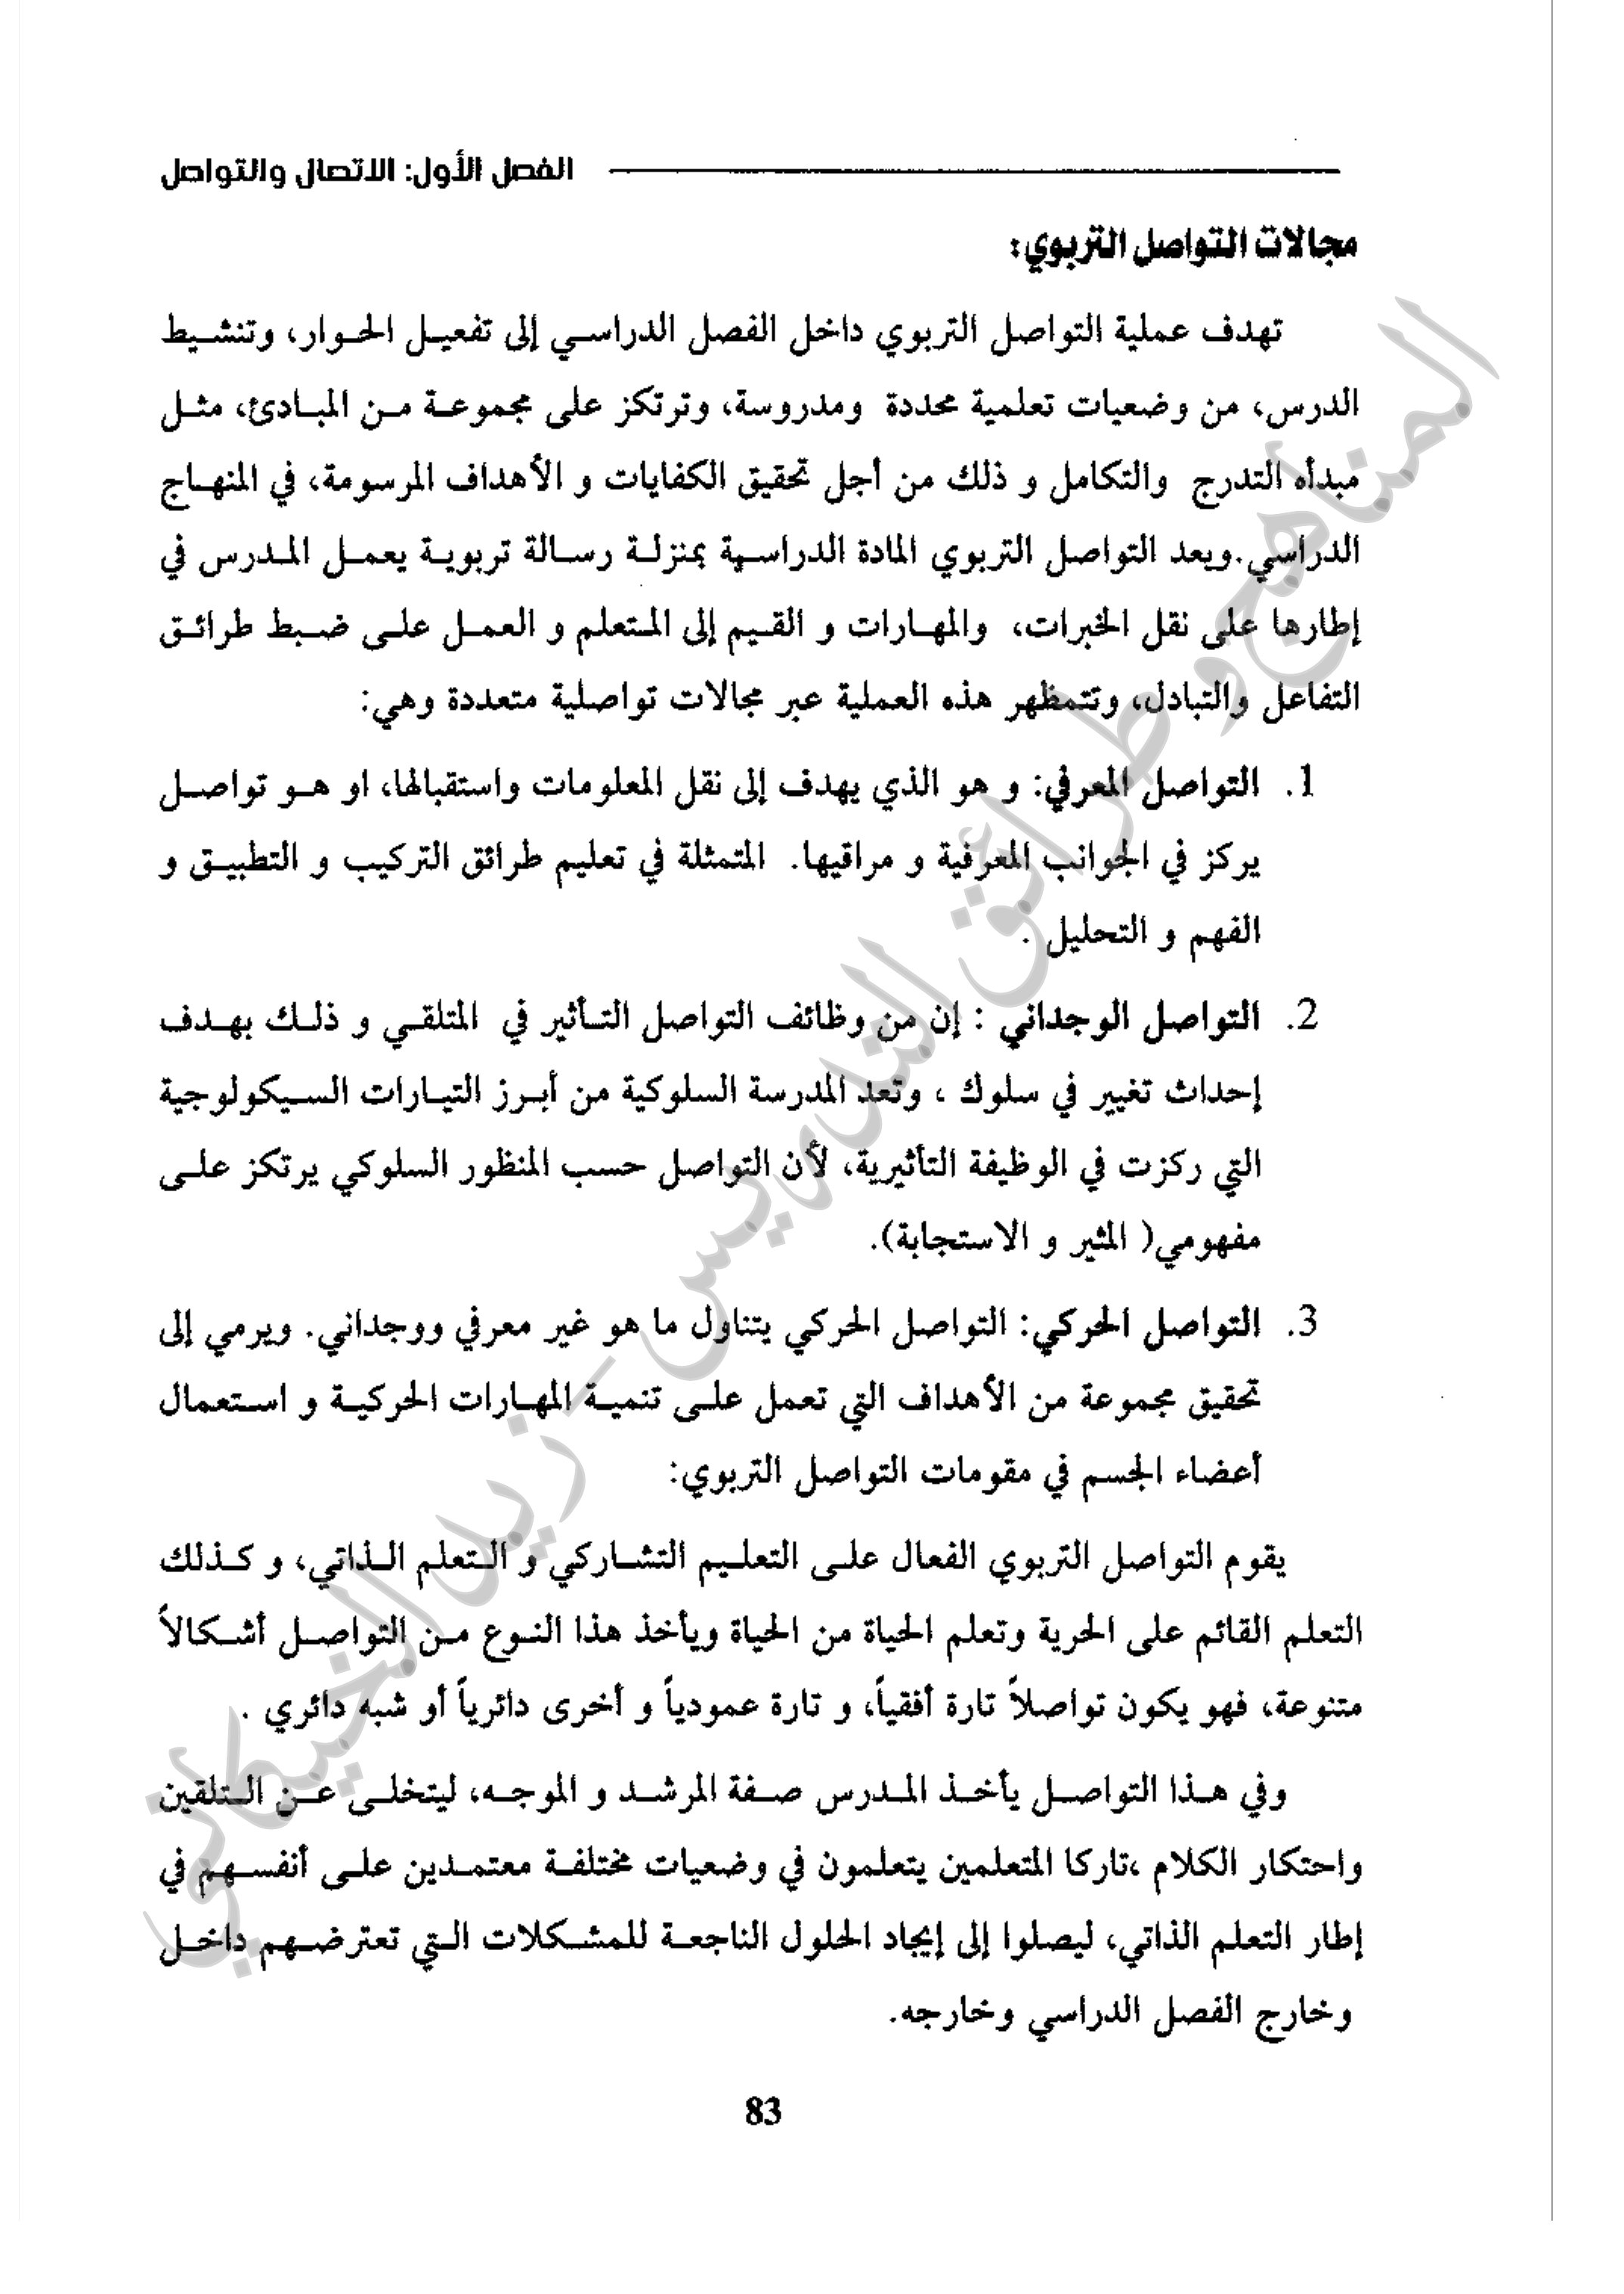 الفصل الأول: الاتصال والتواصل
مجالات التواصل التربوي:
تهدف عملية التواصل التربوي داخل الفصل الدراسي إلى تفعيل الحوار، وتنشيط
الدرس، من وضعيات تعلمية محددة ومدروسة، وترتكز على مجموعة من المبادئ، مثل
مبدأه التدرج والتكامل و ذلك من أجل تحقيق الكفايات و الأهداف المرسومة، في المنهاج
الدراسي.ويعد التواصل التربوي المادة الدراسية بمنزلة رسالة تربوية يعمل المدرس في
إطارها على نقل الخبرات، والمهارات و القيم إلى المتعلم و العمل على ضبط طرائق
التفاعل والتبادل، وتتمظهر هذه العملية عبر مجالات تواصلية متعددة وهي:
1. التواصل المعرفي: و هو الذي يهدف إلى نقل المعلومات واستقبالها، او هو تواصل
يركز في الجوانب المعرفية و مراقيها. المتمثلة في تعليم طرائق التركيب و التطبيق و
الفهم و التحليل .
2. التواصل الوجداني : إن من وظائف التواصل التأثير في المتلقي و ذلك بهدف
إحداث تغيير في سلوك ، وتعد المدرسة السلوكية من أبرز التيارات السيكولوجية
التي ركزت في الوظيفة التأثيرية، لأن التواصل حسب المنظور السلوكي يرتكز على
مفهومي( المثير و الاستجابة).
3. التواصل الحركي: التواصل الحركي يتناول ما هو غير معرفي ووجداني. ويرمي إلى
تحقيق مجموعة من الأهداف التي تعمل على تنمية المهارات الحركية و استعمال
أعضاء الجسم في مقومات التواصل التربوي:
يقوم التواصل التربوي الفعال على التعليم التشاركي و التعلم الذاتي، و كذلك
التعلم القائم على الحرية وتعلم الحياة من الحياة ويأخذ هذا النوع من التواصل أشكالاً
متنوعة، فهو يكون تواصلاً تارة أفقياً، و تارة عمودياً و أخرى دائرياً أو شبه دائري .
وفي هذا التواصل يأخذ المدرس صفة المرشد و الموجه، ليتخلى عن التلقين
واحتكار الكلام ،تاركا المتعلمين يتعلمون في وضعيات مختلفة معتمدين على أنفسهم في
إطار التعلم الذاتي، ليصلوا إلى إيجاد الحلول الناجعة للمشكلات التي تعترضهم داخل
وخارج الفصل الدراسي وخارجه.
83
المناهج وطرائق التدريس - زيد الخيكاني